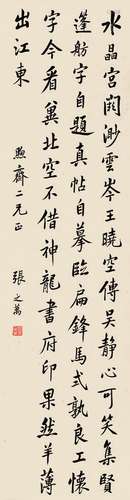 水晶宮闕渺雲岑王曉空傳吳静心可笑集賢
蓬舫字自題真帖自摹臨扁鋒馬式孰良工懷
字今看冀北空不借神龍書府印果然羊薄
出江東
煦齋二兄正
張之萬